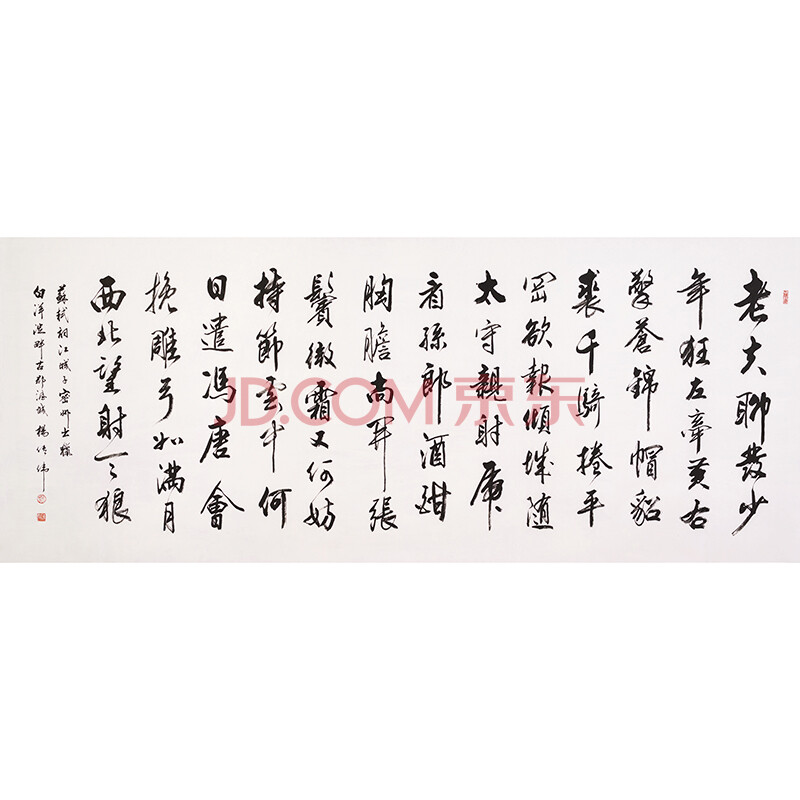 老夫聊發少
年狂左牽黄右
擎蒼錦帽貂
裘千騎捲平
岡欲報傾城随
太守親射虎
看孫郎酒酣
胸膽尚開張
鬢微霜又何妨
持節雲中何
日遣馮唐會
挽雕弓如滿月
西北望射天狼
蘇軾詞江城子密州出獵
白洋淀畔古
JD.COM 京东